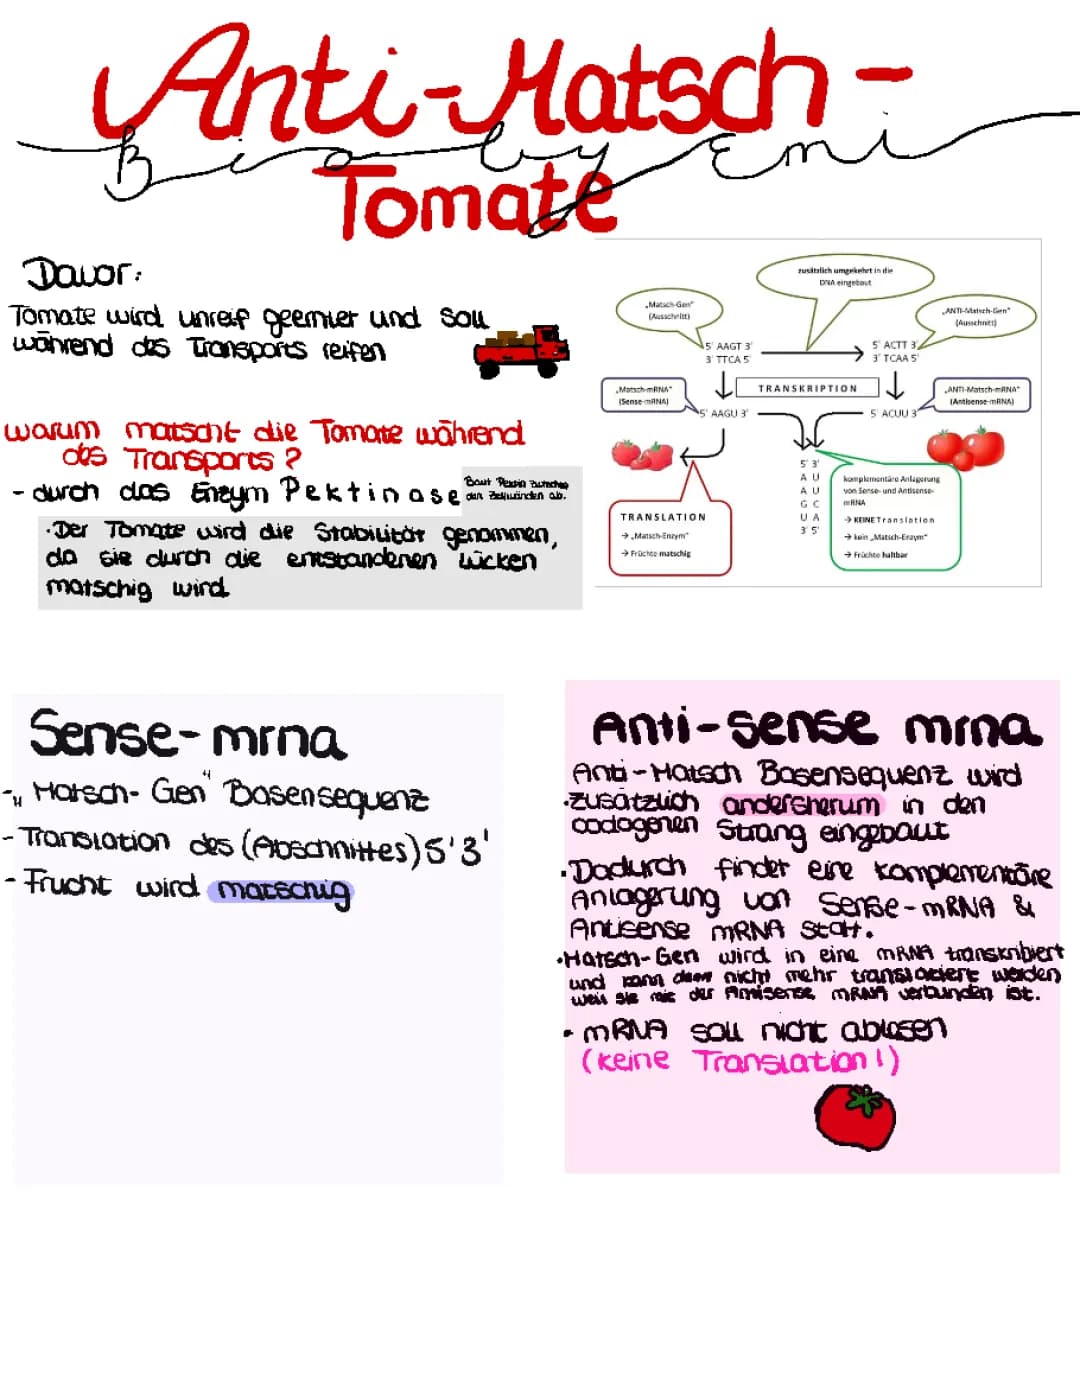 Anti-Matsch-
Bio by Emi
Tomate
Davor:
Tomate wird unreif geerntet und soll
während des Transports reifen
warum matscht die Tomate während
des Transports?
- durch das Enzym Pektinase
Baut Pektin zwischen
den Zellwänden ab.
·Der Tomate wird die Stabilität genommen,
da sie durch die entstandenen Lücken
matschig wird
zusätzlich umgekehrt in die
DNA eingebaut
„Matsch-Gen"
(Ausschnitt)
„ANTI-Matsch-Gen"
(Ausschnitt)
5' AAGT 3'
3' TTCA 5'
5' ACTT 3'
3' TCAA 5'
TRANSKRIPTION
„Matsch-mRNA"
(Sense-mRNA)
„ANTI-Matsch-mRNA"
(Antisense-mRNA)
5' AAGU 3'
5' ACUU 3'
5' 3'
A U
A U
G C
U A
3' 5'
TRANSLATION
→ „Matsch-Enzym"
→ Früchte matschig
komplementäre Anlagerung
von Sense- und Antisense-
mRNA
→ KEINE Translation
→ kein „Matsch-Enzym"
→ Früchte haltbar
Sense-mrna
-„Matsch-Gen" Basensequenz
-Translation des (Abschnittes) 5'3'
-Frucht wird matschig
Anti-sense mrna
Anti-Matsch Basensequenz wird
·zusätzlich andersherum in den
codogenen Strang eingebaut
·Dadurch findet eine komplementäre
Anlagerung von Sense-mRNA &
Antisense mRNA statt.
·Matsch-Gen wird in eine mRNA transkribiert
und kann dann nicht mehr translatiert werden
weil sie mit der Antisense mRNA verbunden ist.
· mRNA soll nicht ablesen
(keine Translation!)